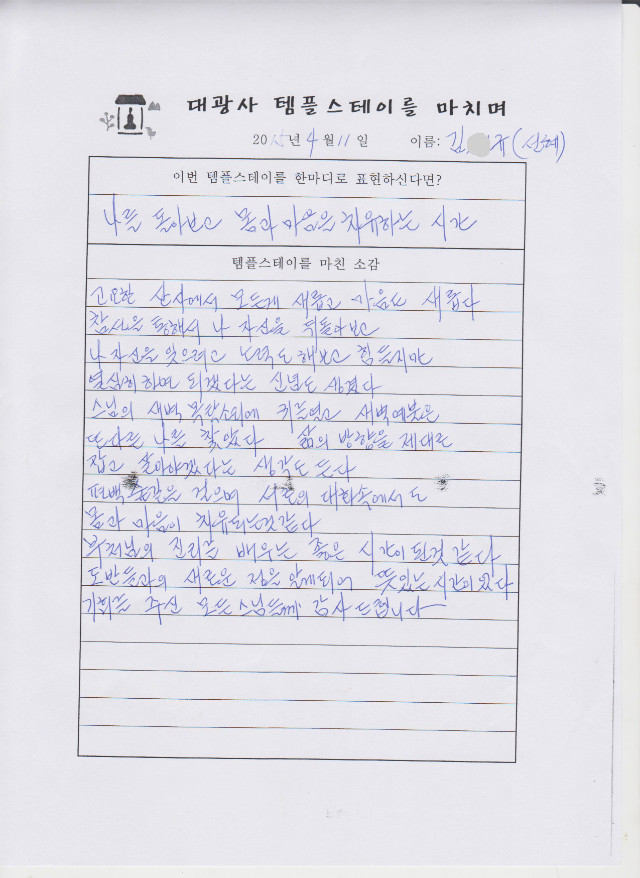 대광사 템플스테이를 마치며
2015년 4월 11일 이름: 김 규(선혜)
이번 템플스테이를 한마디로 표현하신다면?
나를 돌아보고 몸과 마음을 치유하는 시간
템플스테이를 마친 소감
고요한 산사에서 모든게 새롭고 마음도 새롭다
참선을 통해서 나 자신을 뒤돌아보고
나 자신을 잊으려고 노력도 해보고 힘들지만
열심히 하면 되겠다는 신념도 생겼다
스님의 새벽 목탁소리에 귀를열고 새벽예불은
또다른 나를 찾았다 삶의 방향을 제대로
잡고 살아야겠다는 생각도 든다
편백숲길을 걸으며 서로의 대화속에서도
몸과 마음이 치유되는것같다
부처님의 진리를 배우는 좋은 시간이 된것 같다
도반들과의 새로운 정을 알게되어 뜻있는 시간이었다
기회를 주신 모든스님들께 감사드립니다